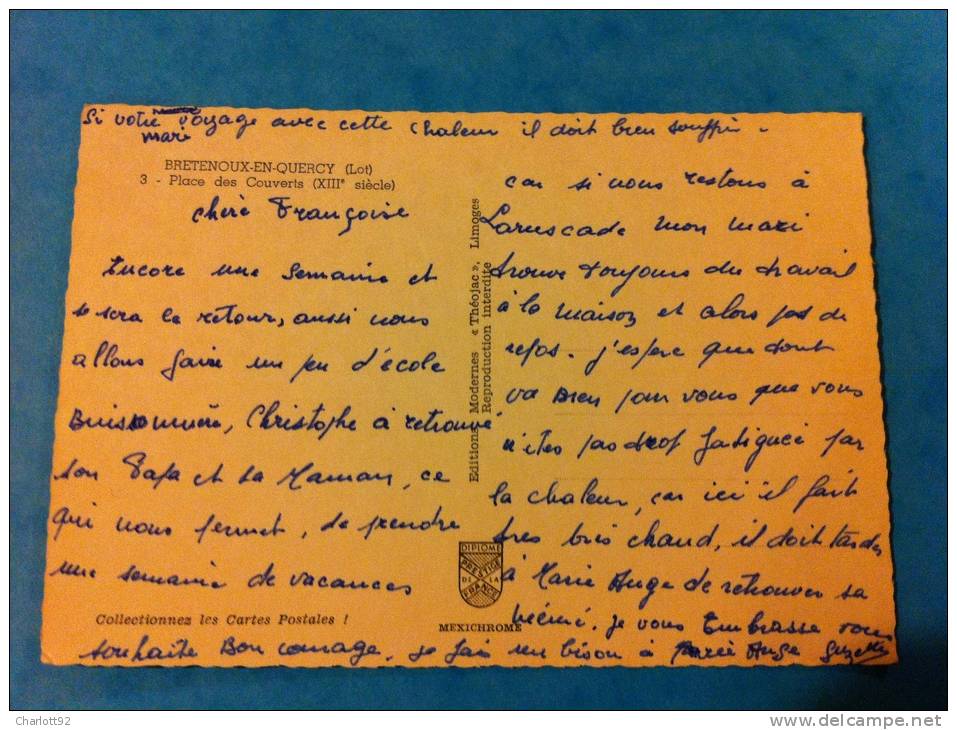 Si votre voyage avec cette chaleur il doit bien souffrir.
mari
BRETENOUX-EN-QUERCY (Lot)
3 - Place des Couverts (XIIIe siècle)
Chère Françoise
Encore une semaine et
se sera le retour, aussi nous
allons faire un peu d'école
Buissonnière, Christophe à retrouvé
son Papa et sa Maman, ce
qui nous permet, de prendre
une semaine de vacances
car si nous restons à
Laruscade mon mari
trouve toujours du travail
à la maison et alors pas de
repos. J'espère que tout
va Bien pour vous que vous
n'êtes pas trop fatiguée par
la chaleur, car ici il fait
très très chaud, il doit tarder
à Marie Ange de retrouver sa
mémé. Je vous Embrasse vous
souhaite Bon courage, je fais un bison à Marie Ange
Editions Modernes « Théojac », Limoges
Reproduction interdite
DIPLOME
PRESTIGE
DE LA
FRANCE
MEXICHROME
Collectionnez les Cartes Postales !
Charlott92
www.delcampe.net